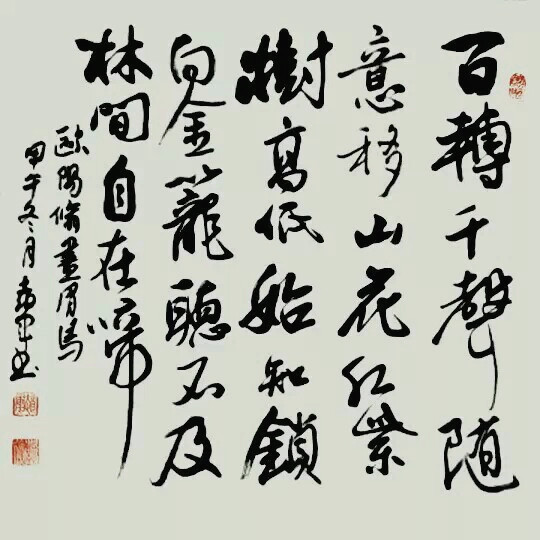 百轉千聲随
意移山花红紫
樹高低始知鎖
向金籠聽不及
林間自在啼
歐陽脩畫眉鳥
甲午冬月